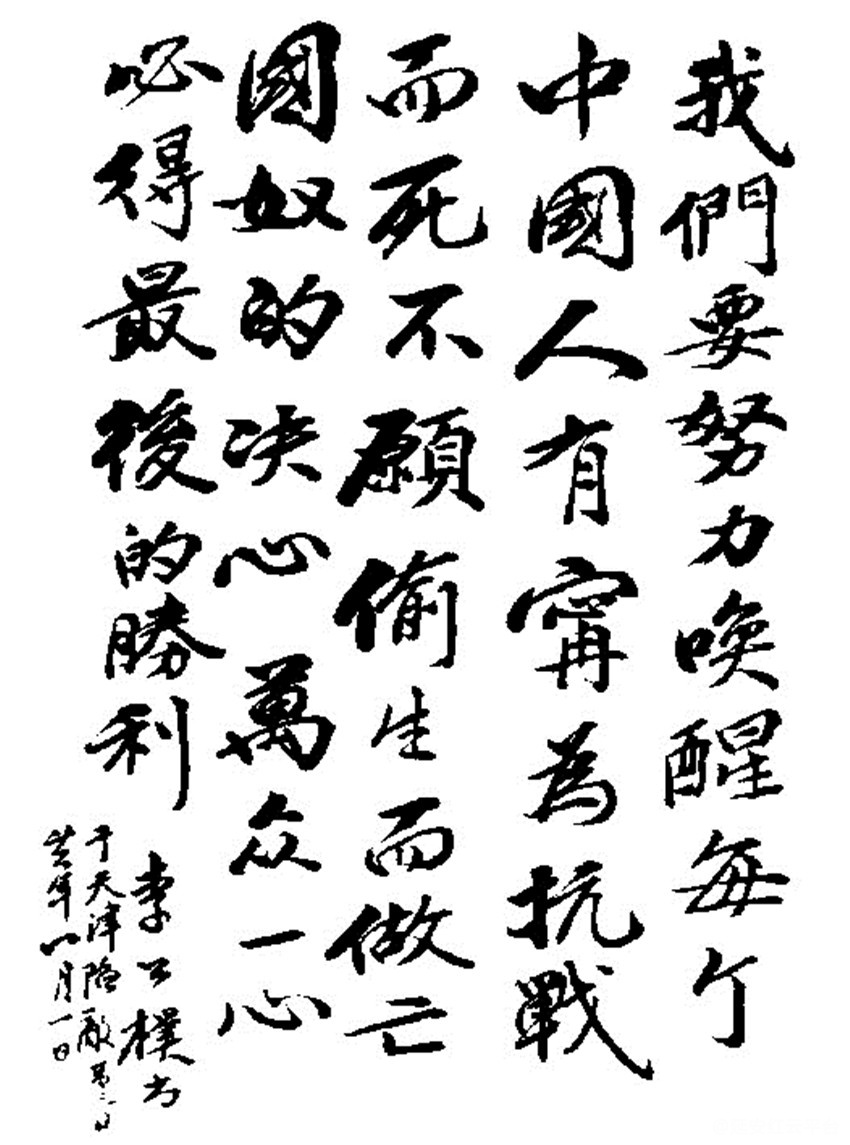 我們要努力喚醒每个
中國人有甯為抗戰
而死不願偷生而做亡
國奴的决心萬众一心
必得最後的勝利
李公樸书
于天津陷敵第三日
廿六年八月一日